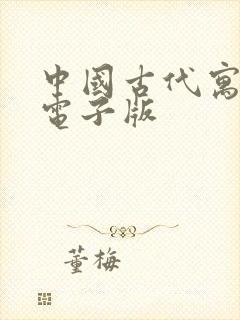 中國古代寓
電子版
董梅